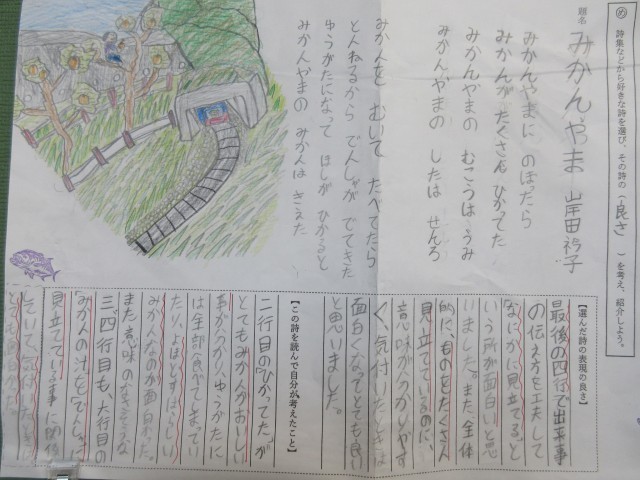 め 詩集などから好きな詩を選び、その詩の（良さ）を考え、紹介しよう。
題名
みかんやま 岸田衿子
みかんやまに のぼったら
みかんが たくさん ひかってた
みかんやまの むこうは うみ
みかんやまの したは せんろ
みかんを むいて たべてたら
とんねるから でんしゃが でてきた
ゆうがたになって ほしが ひかると
みかんやまの みかんは きえた
【選んだ詩の表現の良さ】
最後の四行で出来事
の伝え方を工夫して
なにかに見立てる。と
いう所が面白いと思
いました。また、全体
的に、ものをたくさん
見立てているのに、
意味が分かりやす
く、気付いたときは
面白くなってとても良い
と思いました。
【この詩を読んで自分が考えたこと】
二行目の「ひかってた」が
とてもみかんがおいしい
事が分かり、ゆうがたに
は全部食べてしまってい
たり、よほどすばらしい
みかんなのが面白かった。
また、意味のなさそうな
三、四行目も、六行目の
「みかんの汁」を「でんしゃ」に
見立てている事に関係
していて、気付いたときに
とても面白かった。